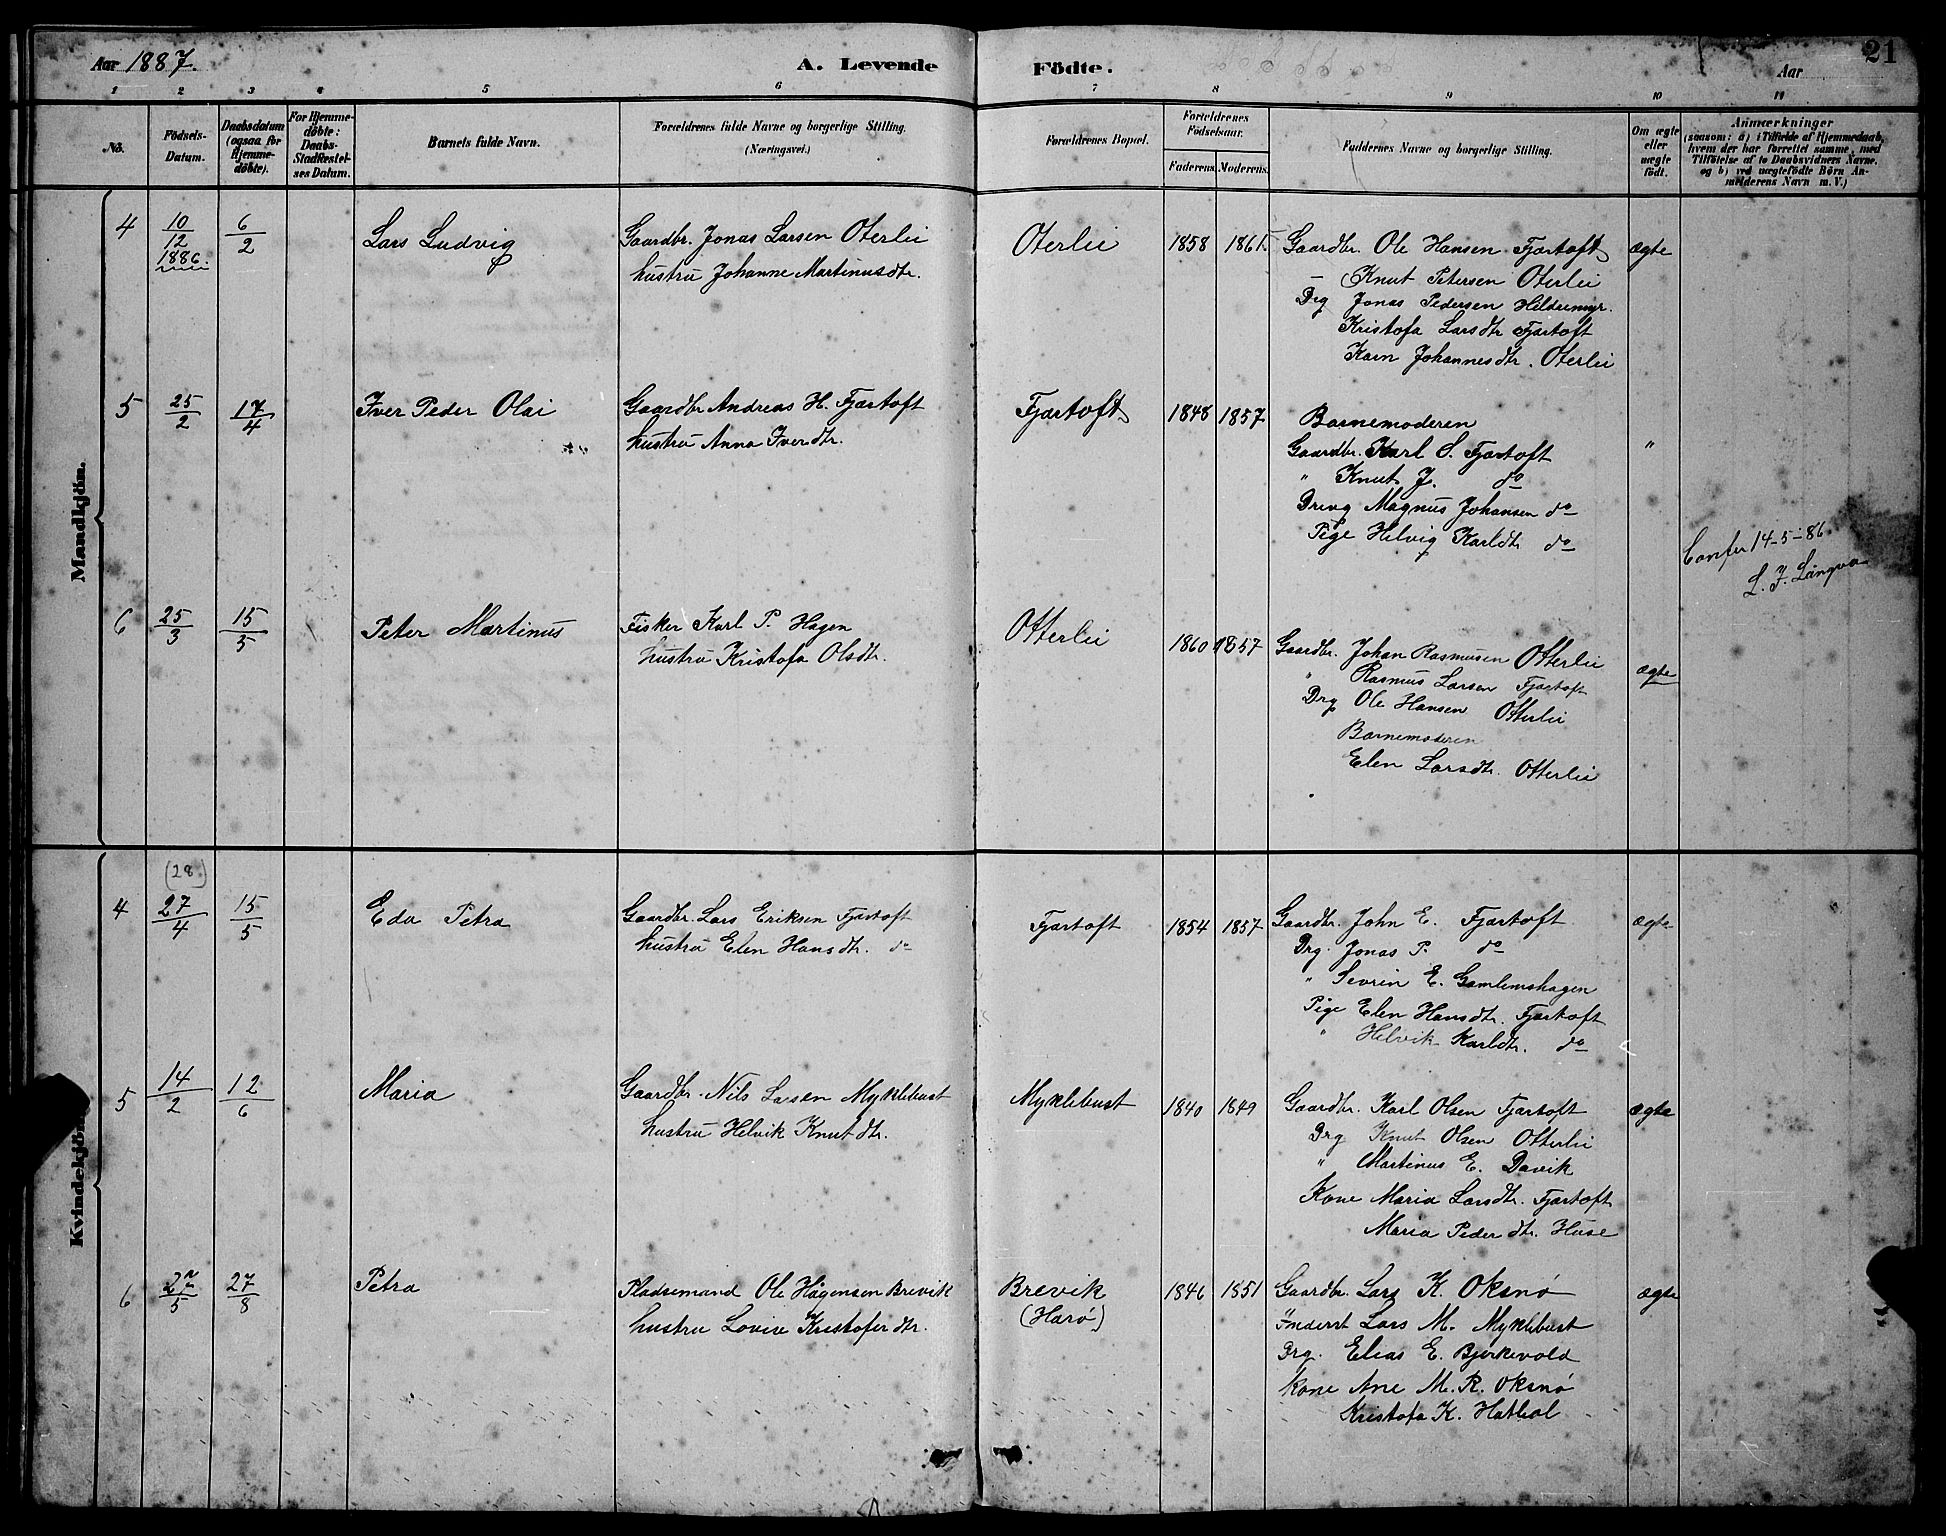 Aar 1887.
A. Levende
Födte.
Aar
21
1 2 3 4 5 6 7 8 9 10 11
No.
Födsels-
Datum.
Daabsdatum
(ogsaa for
Hjemme-
døbte).
For Hjemme-
døbte:
Daabs-
Stadfæstel-
ses Datum.
Barnets fulde Navn.
Forældrenes fulde Navne og borgerlige Stilling.
(Næringsvei.)
Forældrenes Bopæl.
Forældrenes
Födselsaar.
Faderens. Moderens.
Faddernes Navne og borgerlige Stilling.
Om ægte
eller
uægte
födt.
Anmærkninger
(saasom: a) i Tilfælde af Hjemmedaab,
hvem der har forrettet samme, med
Tilföielse af to Daabsvidners Navne.
og b) ved uægtefödte Börn An-
melderens Navn m. V.)
Mandkjön.
4 10/12 1886. 6/2 Lars Ludvig
Gaardbr. Jonas Larsen Oterlei
hustru Johanne Martinusdtr.
Oterlei 1858 1861.
Gaardbr. Ole Hansen Fjærtoft ægte
– Knut Petersen Oterlei
Drg Jonas Pedersen Hildremyr.
Kristofa Larsdtr Fjærtoft
Karn Johannesdtr. Oterlei
5 25/2 17/4 Iver Peder Olai
Gaardbr Andreas H. Fjærtoft
hustru Anna Iverdtr.
Fjærtoft 1848 1857
Barnemoderen
Gaardbr. Karl S. Fjærtoft "
" Knut J. do
Dreng Magnus Johansen do
Pige Helvig Karldtr do
Confer 14-5-86
L. J. Longva
6 25/3 15/5 Peter Martinus
Fisker Karl P. Hagen
hustru Kristofa Olsdtr.
Otterlei 1860 1857
Gaardbr. Johan Rasmusen Otterlei ægte
" Rasmus Larsen Fjærtoft
Drg Ole Hansen Otterlei
Barnemoderen
Elen Larsdtr. Otterlei
Kvindekjön.
(28)
4 27/4 15/5 Eda Petra
Gaardbr. Lars Eriksen Fjærtoft
hustru Elen Hansdtr. do
Fjærtoft 1854 1857
Gaardbr. John E. Fjærtoft ægte
Drg. Jonas P. do
" Sevrin E. Gamlemshagen
Pige Elen Hansdtr. Fjærtoft
" Helvik Karldtr. do
5 14/2 12/6 Maria
Gaardbr. Nils Larsen Myklebust
hustru Helvik Knutdtr.
Myklebust 1840 1849
Gaardbr. Karl Olsen Fjærtoft ægte
Drg Knut Olsen Otterlei
" Martinus E. Davik
Kone Maria Larsdtr. Fjærtoft
Maria Pederdtr. Huse
6 22/5 27/8 Petra
Pladsemand Ole Hågensen Brevik
hustru Lovise Kristoferdtr.
Brevik
(Harø)
1846 1851
Gaardbr. Lars K. Oksnø ægte
Inderst Lars M. Myklebust
Drg. Elias E. Bjerkevold
kone Ane M. R. Oksnø
Kristofa K. Hatløl